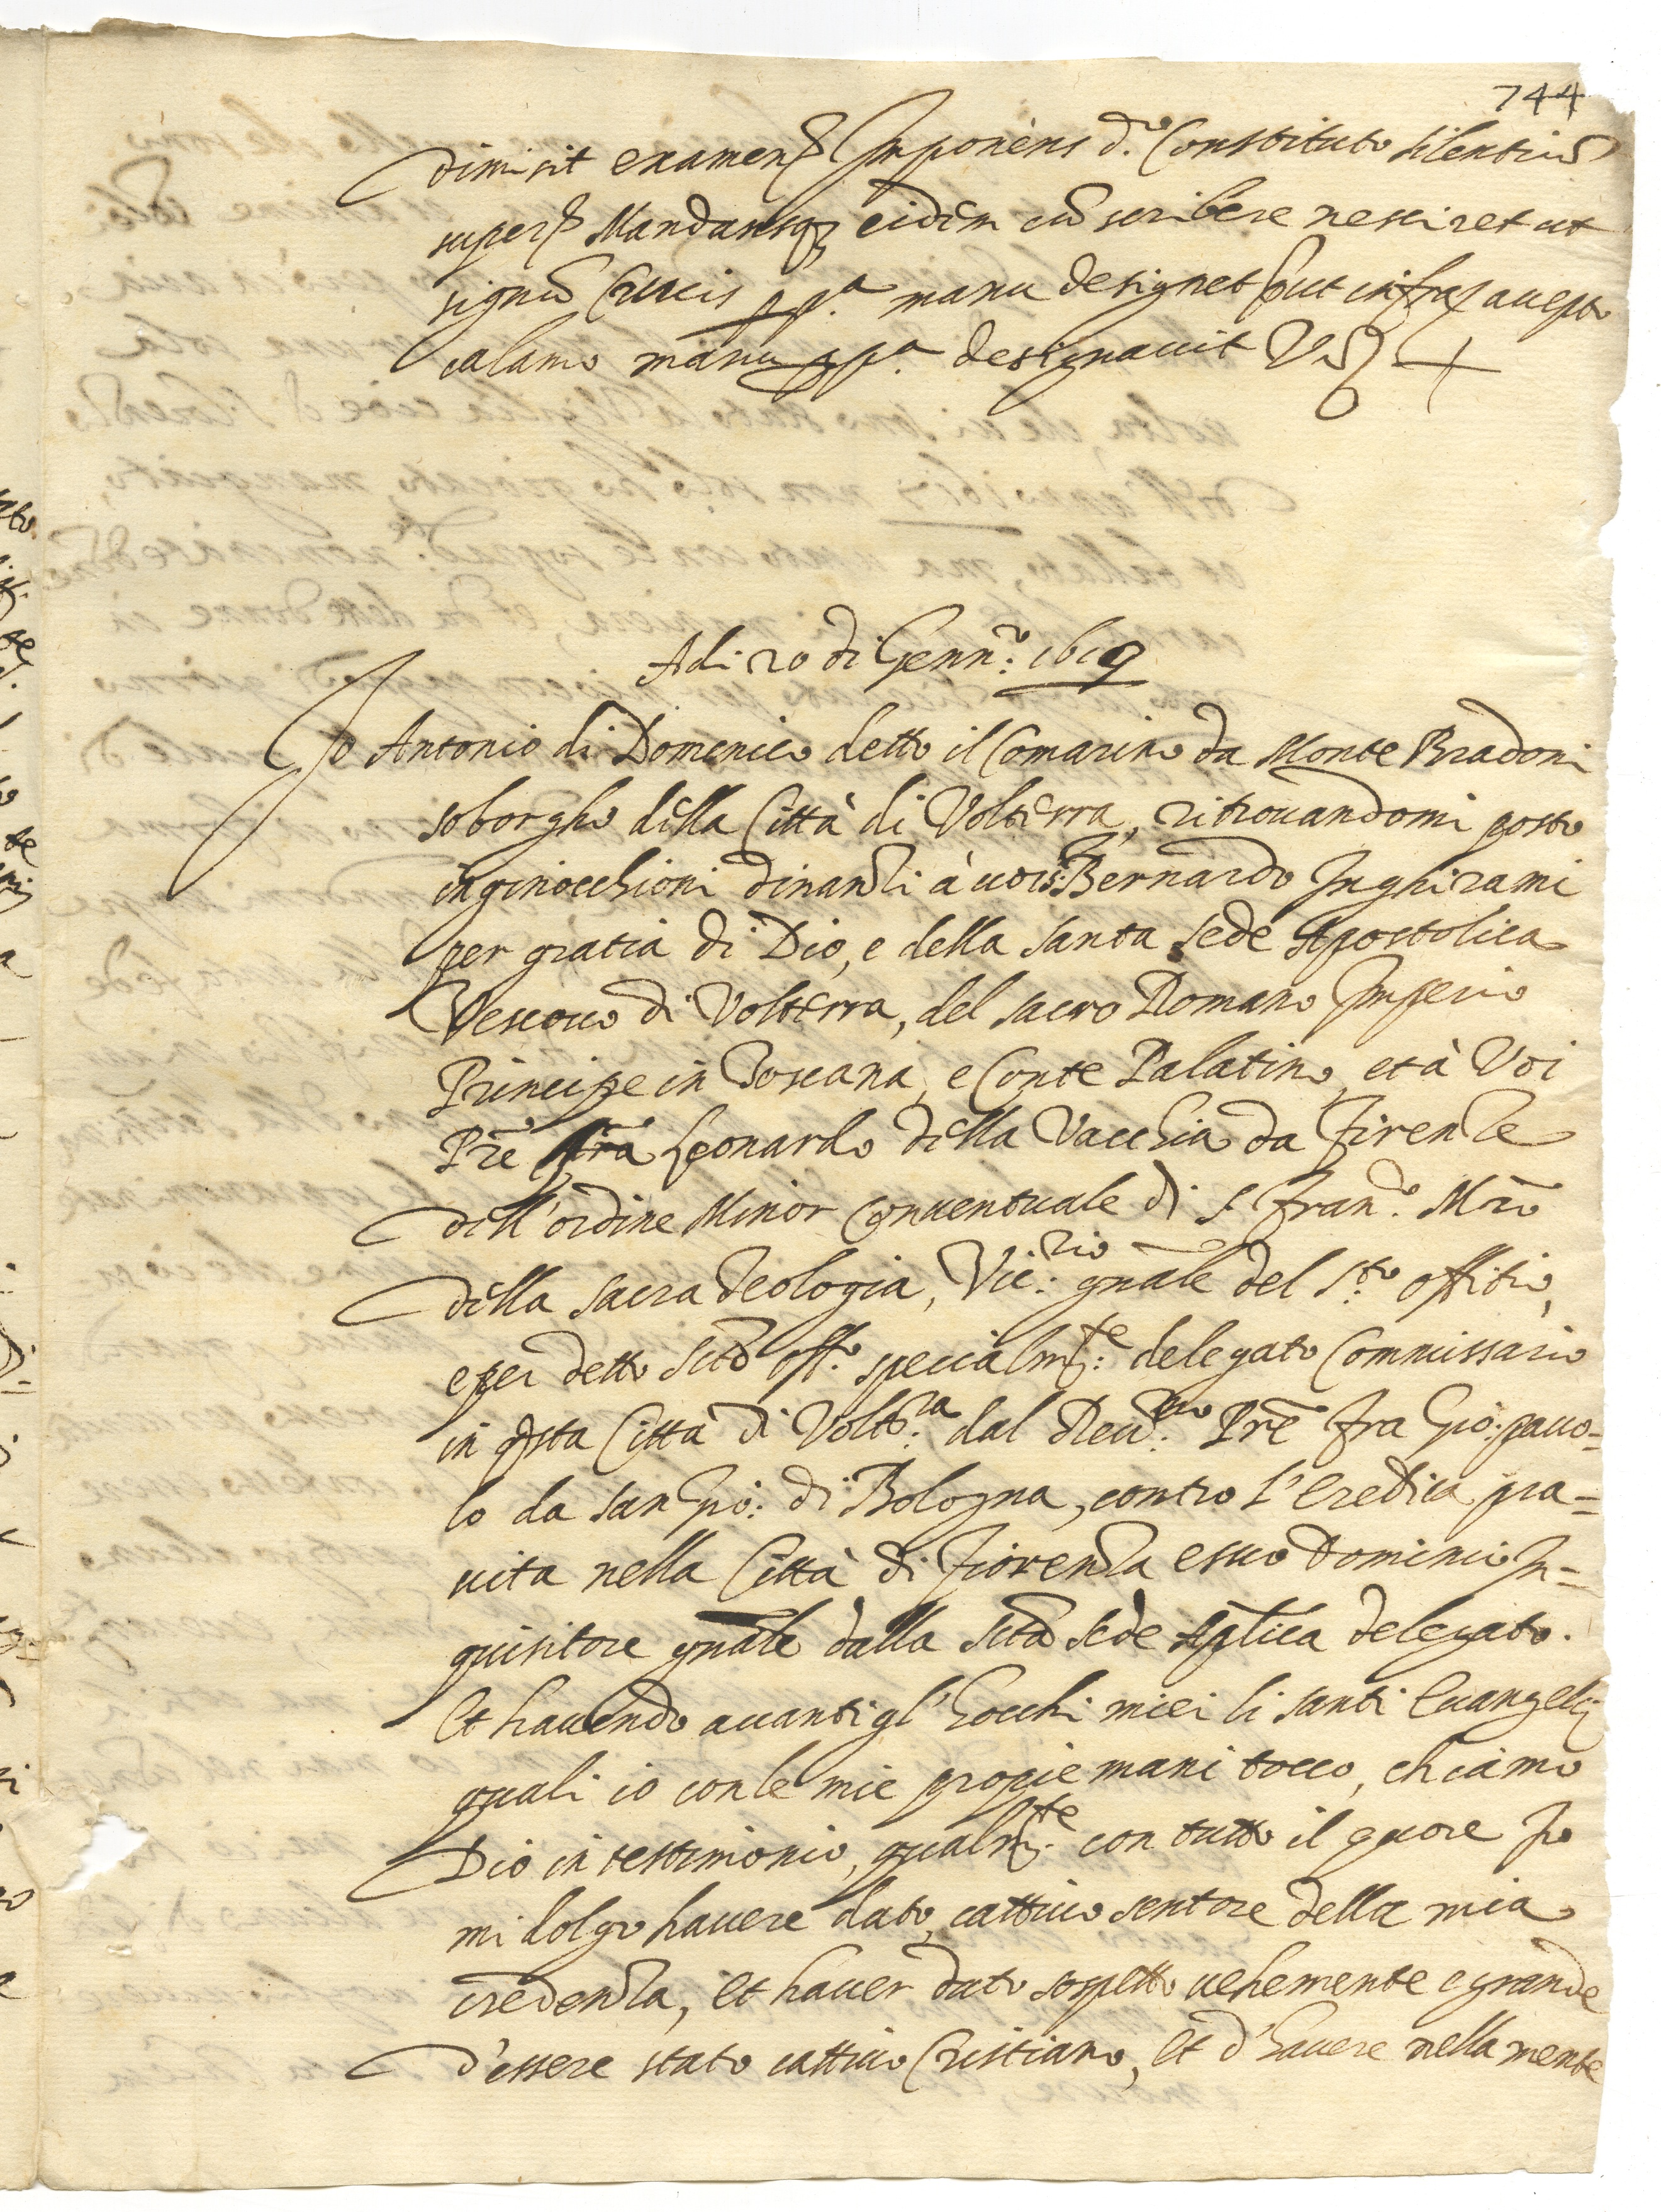 744
dimisit examen Imponens d.o Constituto silentiũ
super Mandansq; eidem cũ scribere nesciret ut
signũ Crucis pp.a manu designet put infra accepto
calamo manu pp.a designavit Vz +
Adi 20 di Genn.o 1619
Io Antonio di Domenico detto il Comarino da Monte Bradoni
soborgho della Città di Volterra, ritrovandomi posto
inginocchioni dinanzi à voi Bernardo Inghirami
per gratia di Dio, e della Santa Sede Apostolica
Vescovo di Volterra, del sacro Romano Imperio
Principe in Toscana, e Conte Palatino, et à Voi
Prẽ fra Leonardo della Vacchia da Firenze
dell'ordine Minor Conventuale di S. Fran.o Mrõ
della sacra Teologia, Vic.rio gnãle del S.to offitio,
e per detto Sctõ off.o specialm.te delegato Commissario
in qsta Città di Volt.ra dal Reu.mo Prẽ fra Gio: pauo=
lo da san Gio: di Bologna, contro l'eretica pra=
vita nella Città di Fiorenza e suo Dominio In=
quisitore gnãle dalla sctã sede Aplica delegato.
Et havendo avanti gl'hocchi miei li santi Evangelij
quali io con le mie propie mani tocco, chiamo
Dio in testimonio, qualm.te con tutto il quore Io
mi dolgo havere dato cattivo sentore della mia
credenza, et haver dato sospetto vehemente e grande
d'essere stato cattivo Cristiano, et d'havere nella mente